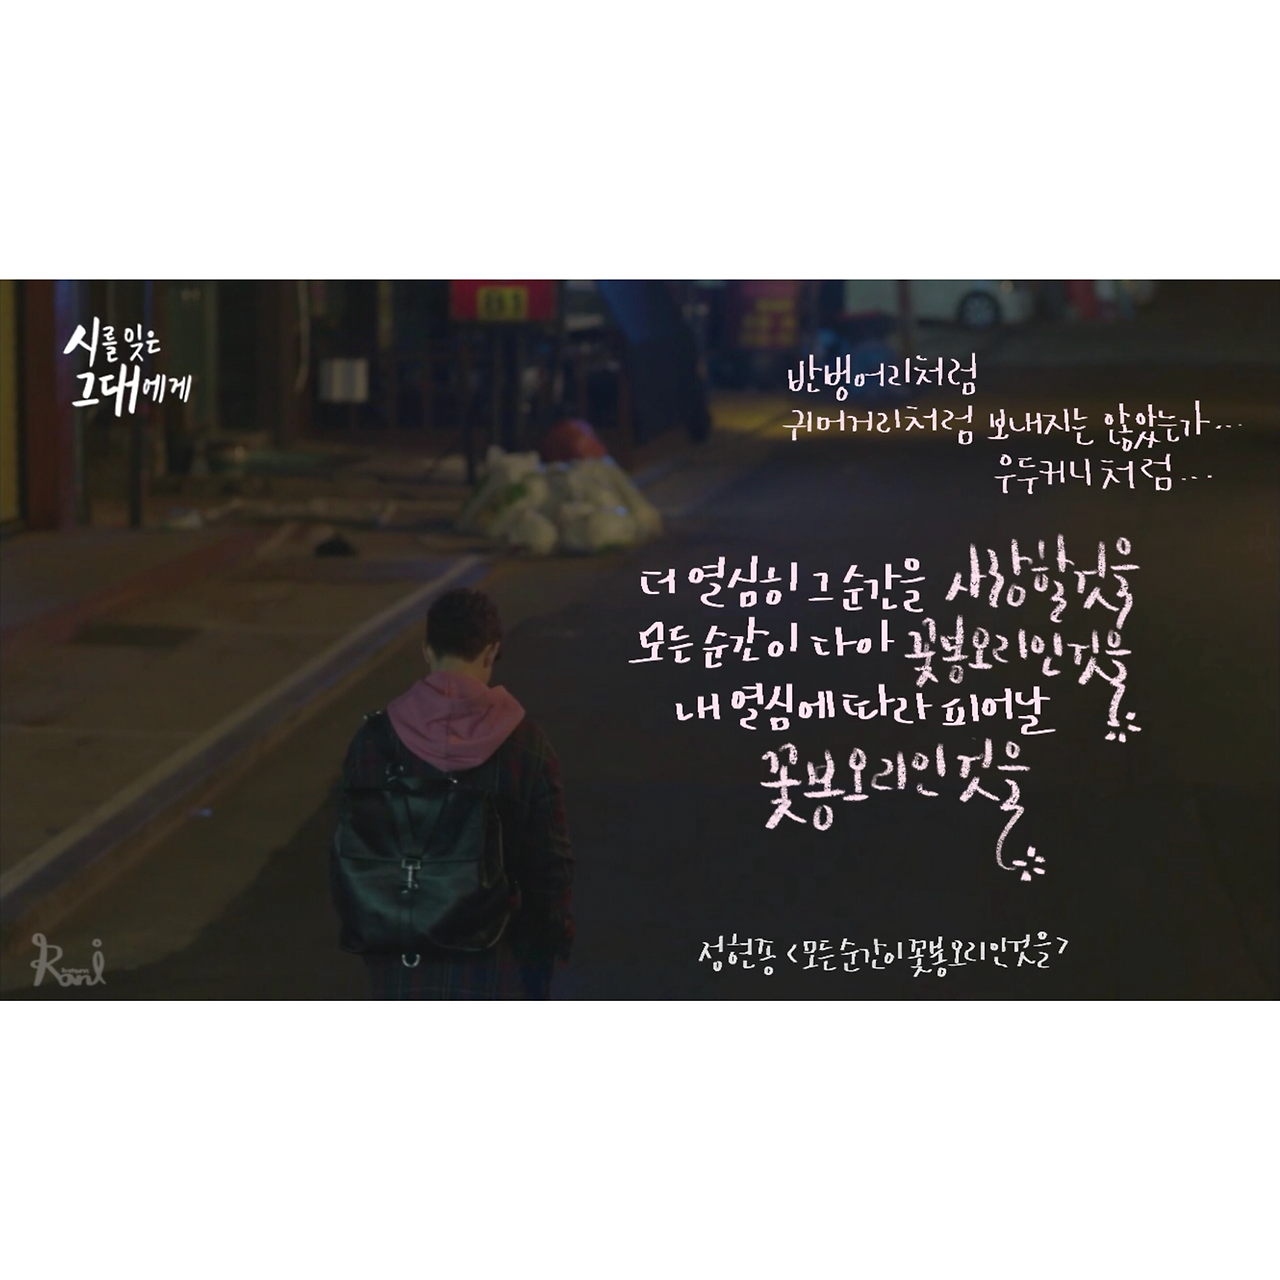 시를 잊은
그대에게
B1
반벙어리처럼
귀머거리처럼 보내지는 않았는가...
우두커니처럼...
더 열심히 그 순간을 사랑할것을
모든 순간이 다아 꽃봉오리인것을
내 열심에 따라 피어날
꽃봉오리인것을
정현종 <모든 순간이 꽃봉오리인것을>
Rani